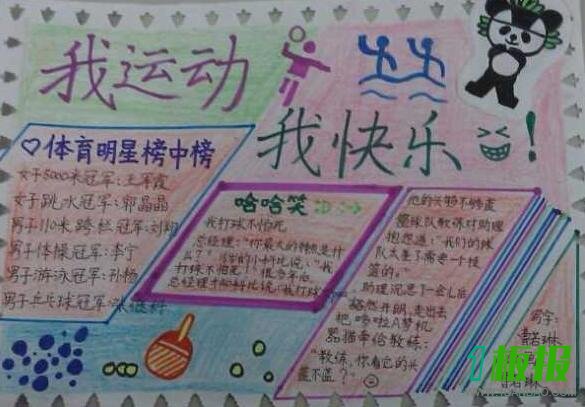 我运动
我快乐 !
体育明星榜中榜
女子5000米冠军:王军霞
女子跳水冠军:郭晶晶
男子110米跨栏冠军:刘翔
男子体操冠军:李宁
男子游泳冠军:孙杨
男子乒乓球冠军:张继科
哈哈笑
我打球不怕死
总经理:“你最大的特点是什
么?”
打球不怕死!”很多年后
总经理
他的头够不够
篮球队教练对助理
抱怨道:“我们的球
队太差了需要一个
篮的。”
助理沉思了一会儿后
豁然开朗,走出去
把哆啦A梦机
器猫牵给教练:
“教练,你看它的头
盖不盖?”
写字:
琳
板报